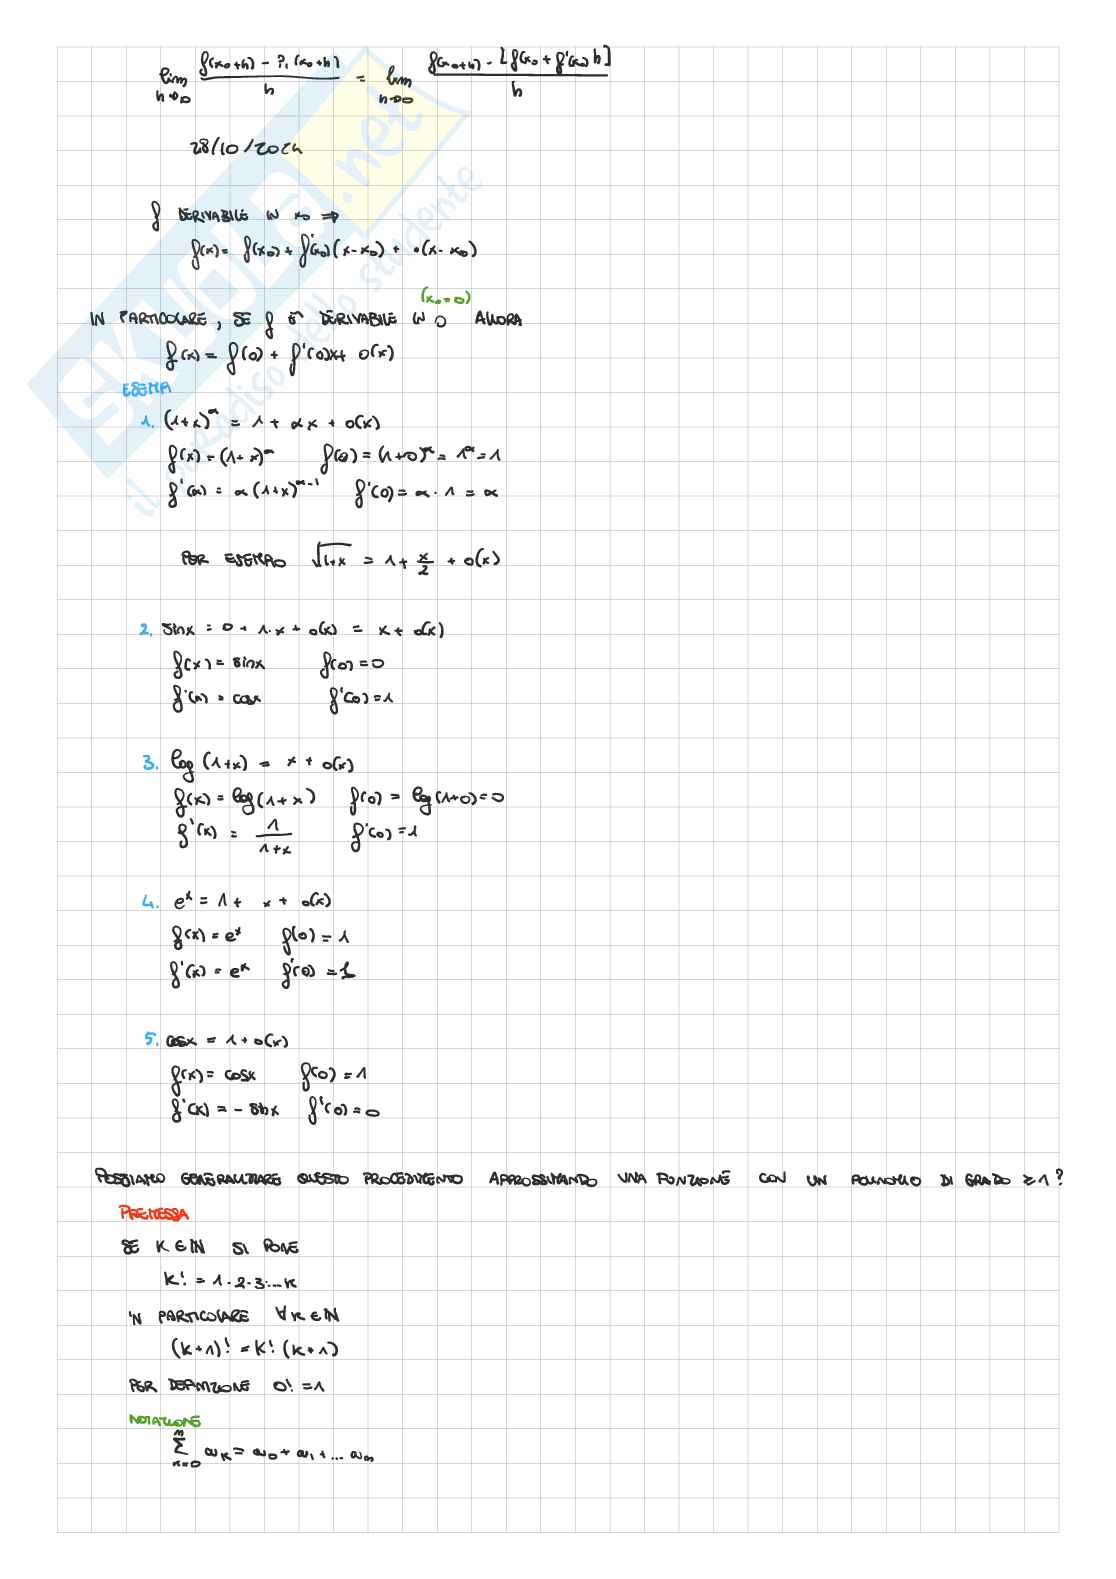 lim h→0 (f(x₀+h) - P₁(x₀+h))/h = lim h→0 (f(x₀+h) - [f(x₀ + f'(x₀) h])/h
28/10/2024
f DERIVABILE IN x₀ ⇒
f(x) = f(x₀) + f'(x₀)(x-x₀) + o(x-x₀)
(x₀=0)
IN PARTICOLARE, SE f È DERIVABILE IN 0 ALLORA
f(x) = f(0) + f'(0)x + o(x)
ESEMPI
1. (1+x)^α = 1 + αx + o(x)
f(x) = (1+x)^α f(0) = (1+0)^α = 1^α = 1
f'(x) = α(1+x)^(α-1) f'(0) = α · 1 = α
PER ESEMPIO √(1+x) = 1 + x/2 + o(x)
2. sinx = 0 + 1·x + o(x) = x + o(x)
f(x) = sinx f(0) = 0
f'(x) = cosx f'(0) = 1
3. log(1+x) = x + o(x)
f(x) = log(1+x) f(0) = log(1+0) = 0
f'(x) = 1/(1+x) f'(0) = 1
4. e^x = 1 + x + o(x)
f(x) = e^x f(0) = 1
f'(x) = e^x f'(0) = 1
5. cosx = 1 + o(x)
f(x) = cosx f(0) = 1
f'(x) = - sinx f'(0) = 0
POSSIAMO GENERALIZZARE QUESTO PROCEDIMENTO APPROSSIMANDO UNA FUNZIONE CON UN POLINOMIO DI GRADO ≥ 1?
PREMESSA
SE K ∈ ℕ SI PONE
K! = 1·2·3·...K
IN PARTICOLARE ∀K ∈ ℕ
(K+1)! = K!(K+1)
PER DEFINIZIONE 0! = 1
NOTAZIONE
∑_{k=0}^{n} a_k = a₀ + a₁ + ... a_n
SKUOLA.net
il paradiso dello studente